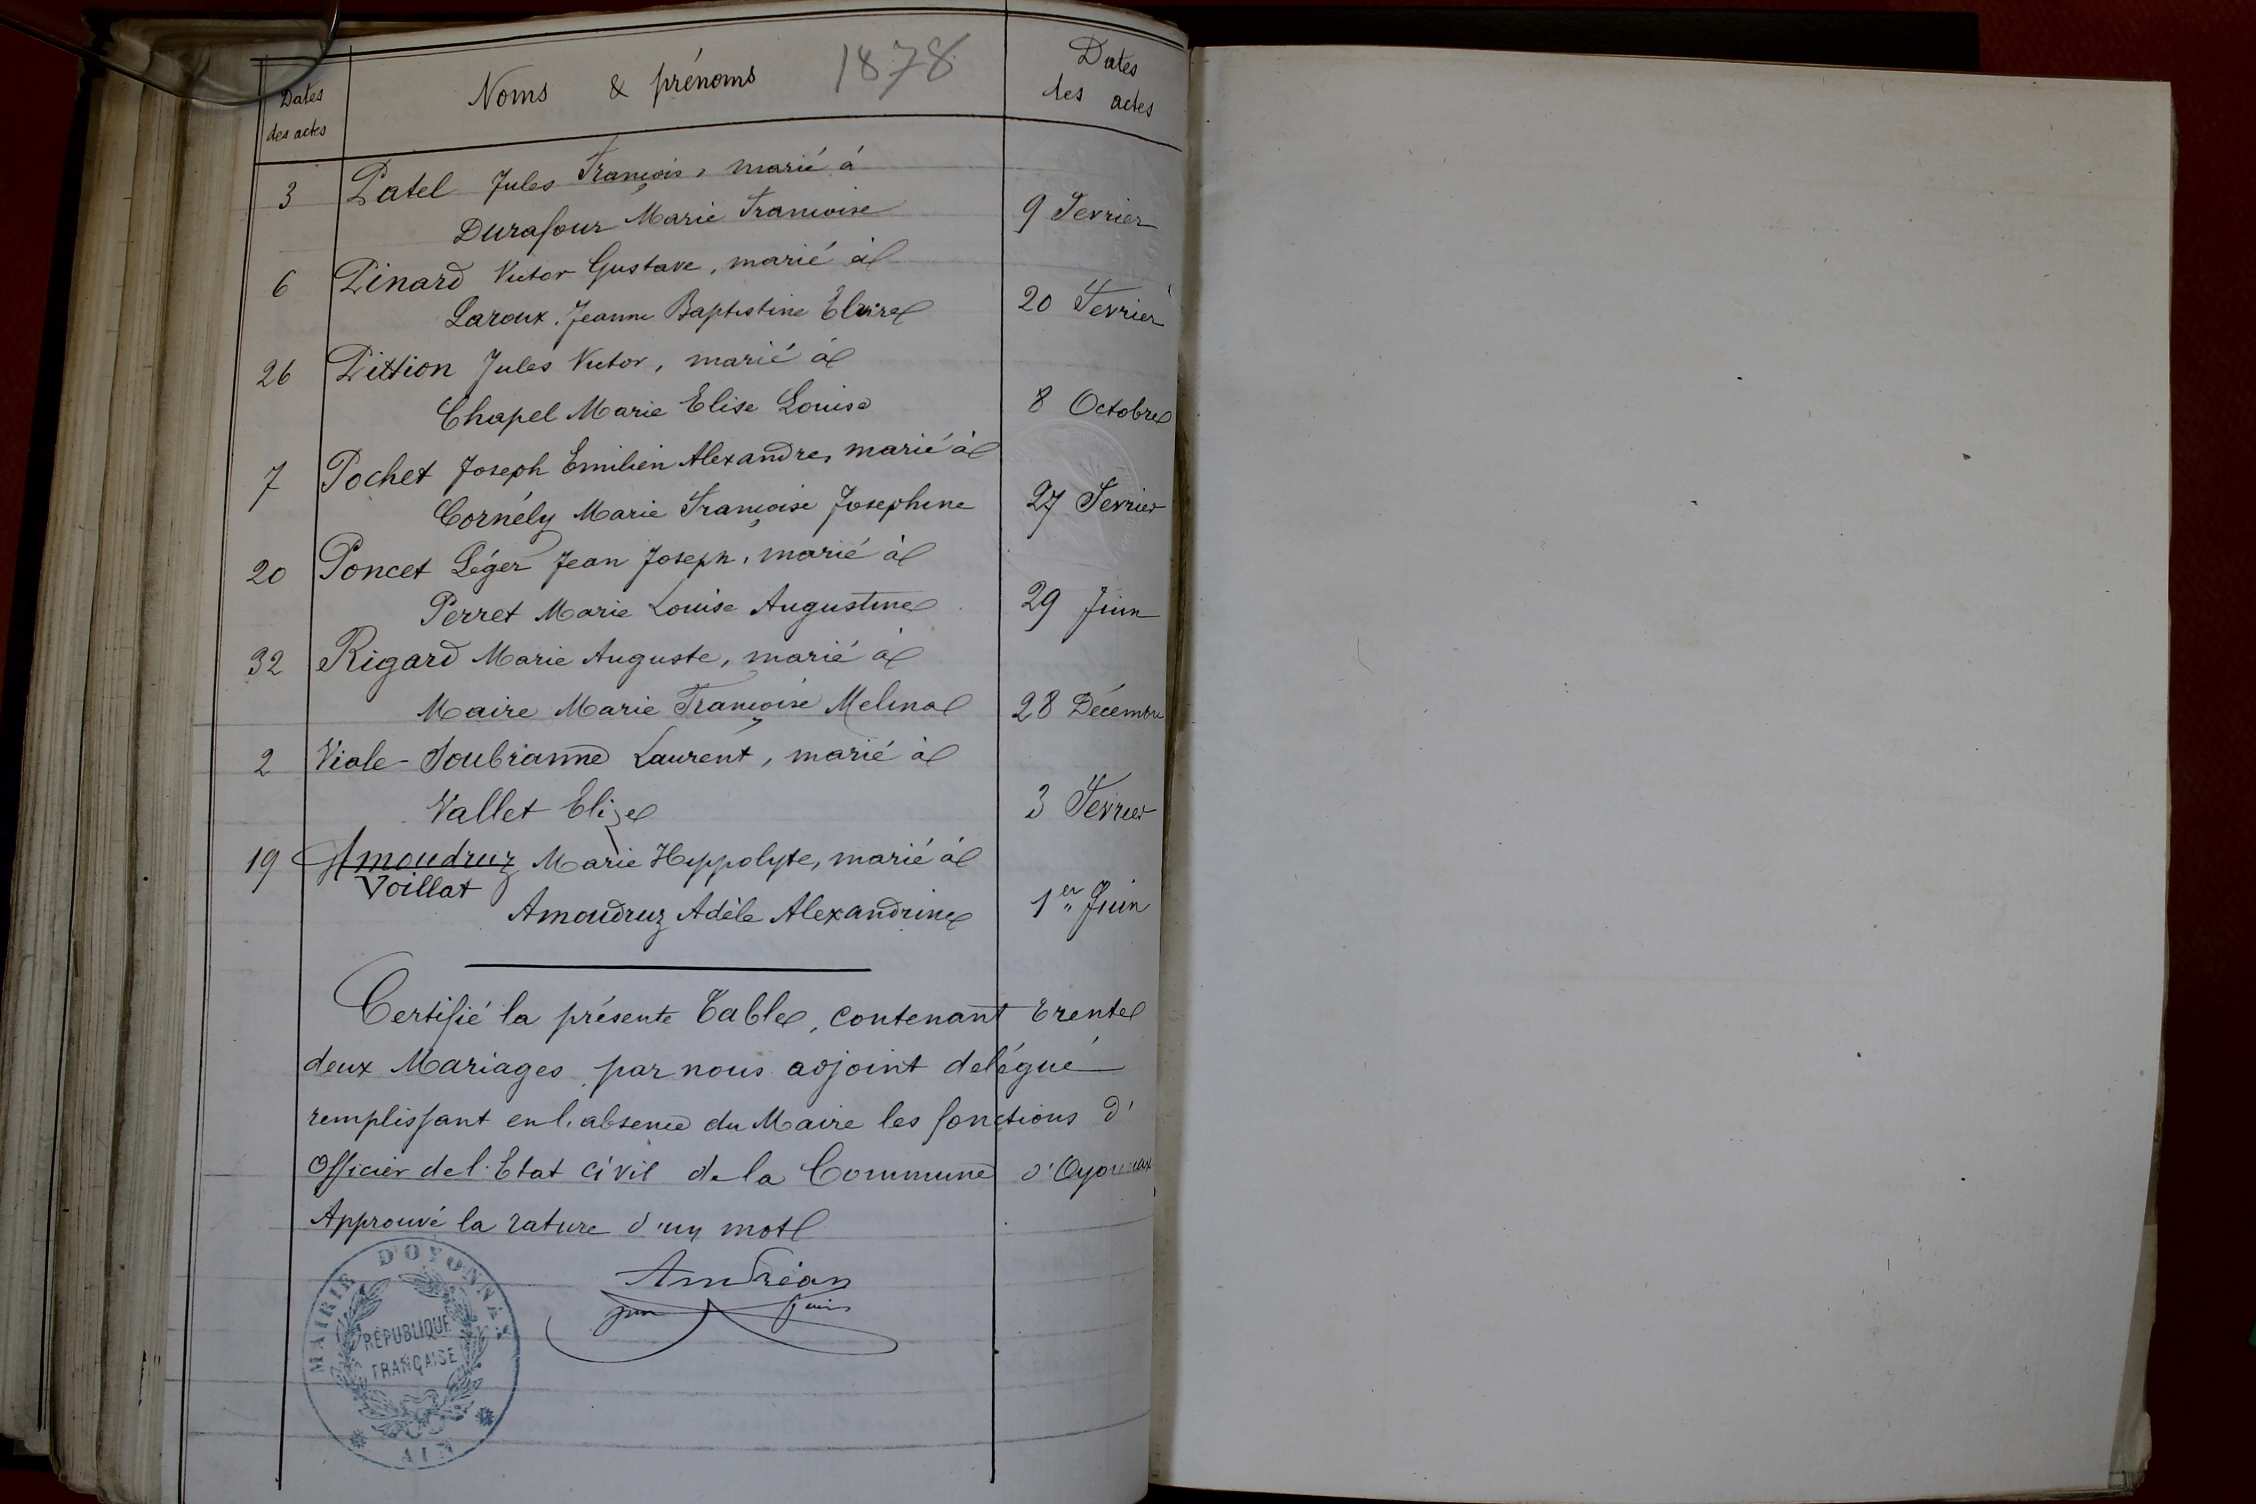 1878
Dates des actes
Noms & prénoms
Dates des actes
3 Patel Jules François, marié à
Durafour Marie Françoise 9 Fevrier
6 Pinard Victor Gustave, marié à
Laroux Jeanne Baptistine Elvire 20 Fevrier
26 Pittion Jules Victor, marié à
Chapel Marie Elise Louise 8 Octobre
7 Pochet Joseph Emilien Alexandre, marié à
Cornély Marie Françoise Josephine 27 Fevrier
20 Poncet Léger Jean Joseph, marié à
Perret Marie Louise Augustine 29 Juin
32 Rigard Marie Auguste, marié à
Maire Marie Françoise Melina 28 Décembre
2 Viale-Soubrane Laurent, marié à
Vallet Elize 3 Fevrier
19 Amoudruz Marie Hyppolyte, marié à
Voillat
Amoudruz Adèle Alexandrine 1er Juin
Certifié la présente Table, contenant trente
deux Mariages par nous adjoint delégué
remplissant en l'absence du Maire les fonctions d'
Officier de l'Etat Civil de la Commune d'Oyonnax
Approuvé la rature d'un mot
MAIRIE D'OYONNAX
RÉPUBLIQUE
FRANÇAISE
AIN